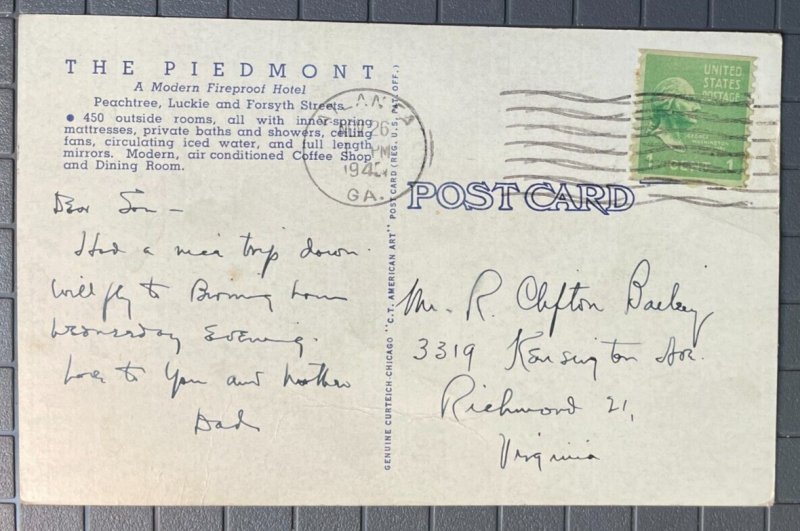 THE PIEDMONT
A Modern Fireproof Hotel
Peachtree, Luckie and Forsyth Streets
● 450 outside rooms, all with inner-spring
mattresses, private baths and showers, ceiling
fans, circulating iced water, and full length
mirrors. Modern, air conditioned Coffee Shop
and Dining Room.
Dear Son —
Had a nice trip down.
Will fly to Birming ham
Wednesday Evening.
Love to You and Mother
Dad
GENUINE CURTEICH-CHICAGO "C.T. AMERICAN ART" POST CARD (REG. U.S. PAT. OFF.)
ATLANTA
26
PM
GA.
UNITED
STATES
POSTAGE
GEORGE
WASHINGTON
1 CENT 1
POST CARD
Mr. R. Clifton Bailey
3319 Kensington Ave.
Richmond 21,
Virginia